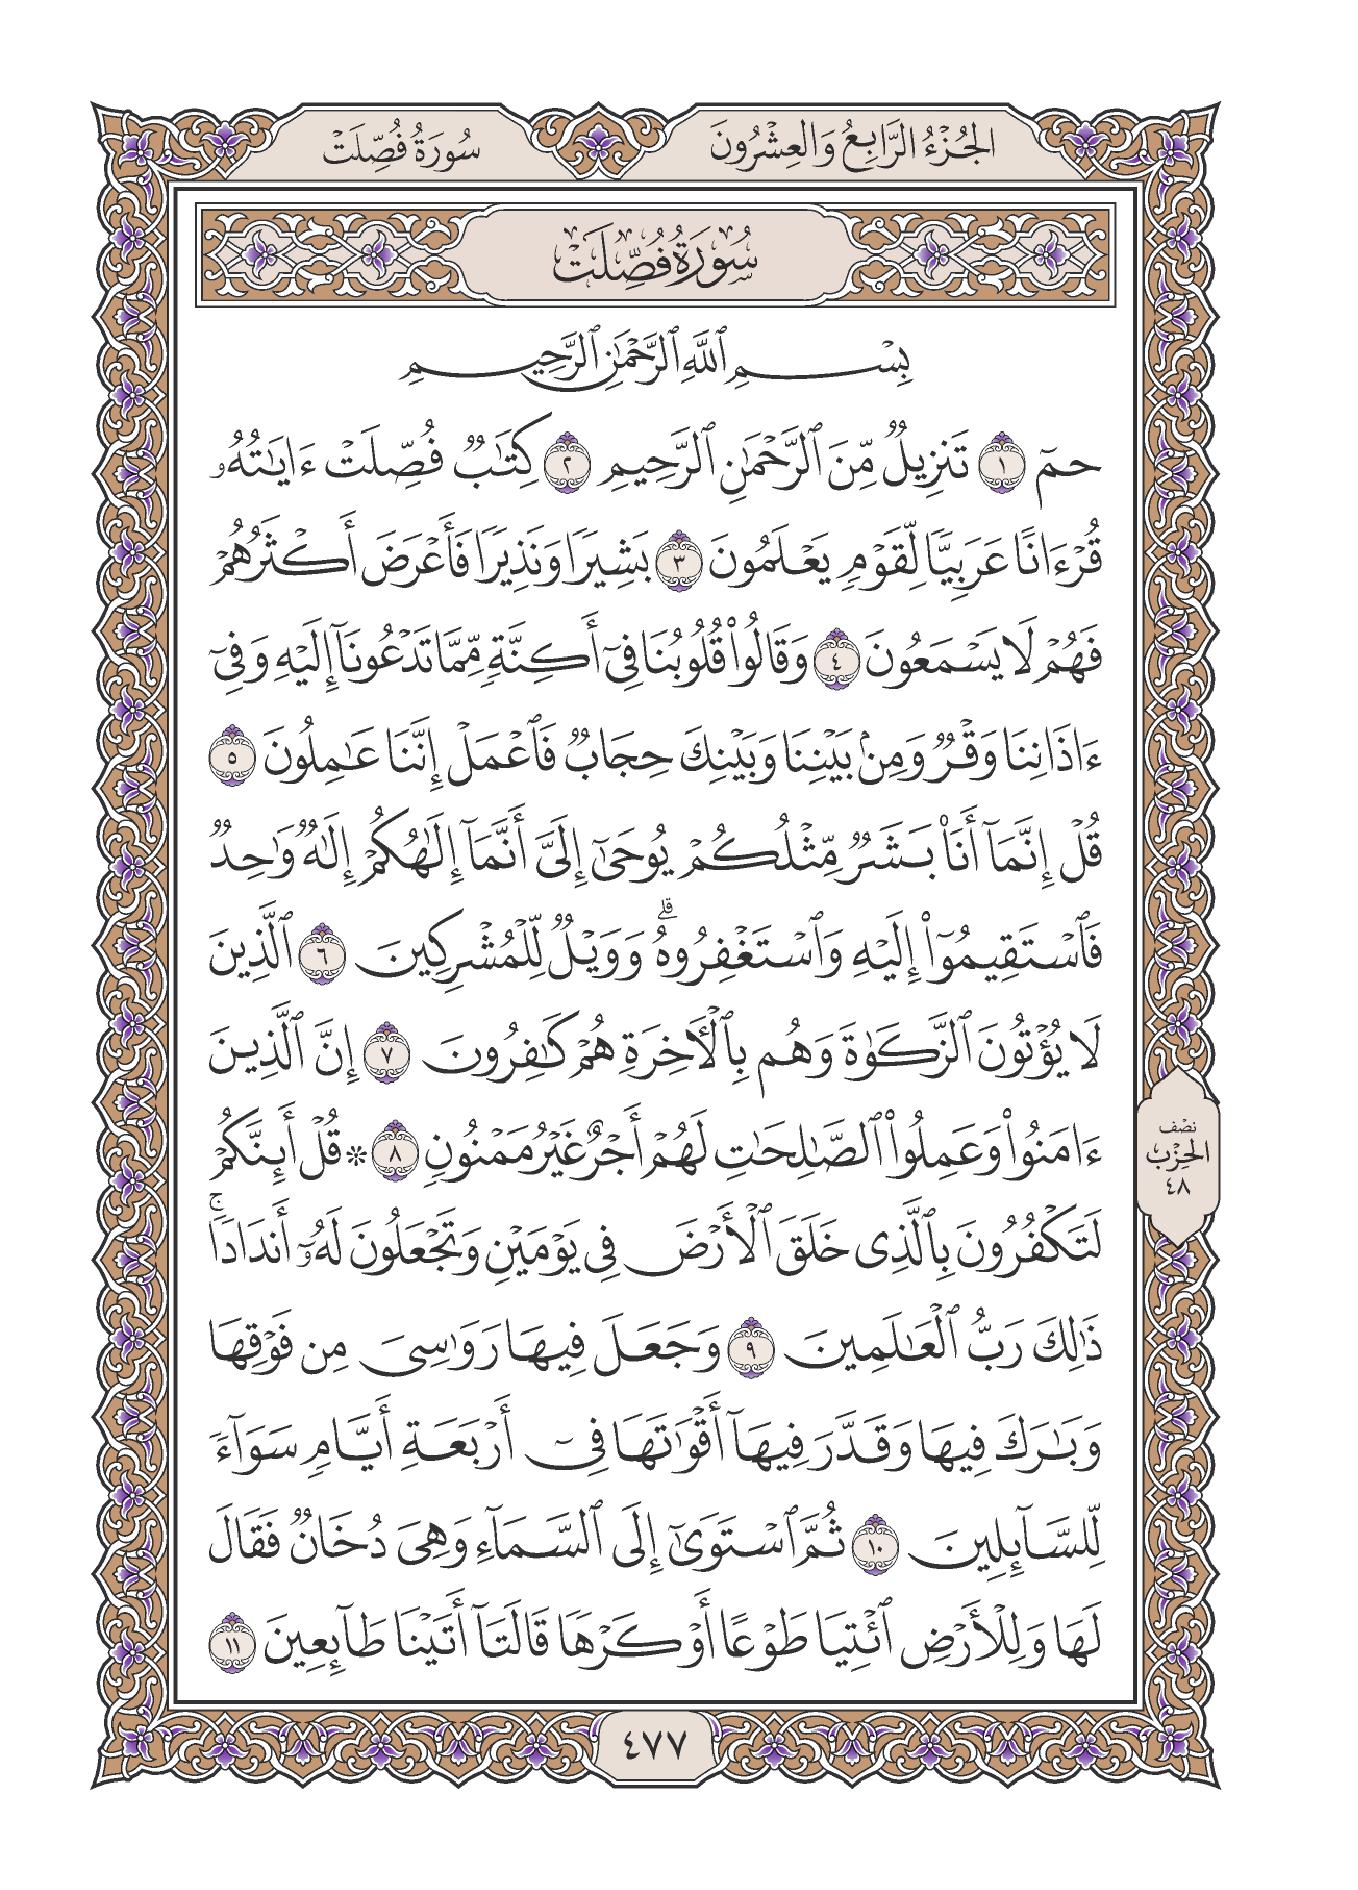 الجُزْءُ الرَّابِعُ وَالعِشْرُونَ
سُورَةُ فُصِّلَتْ
سُورَةُ فُصِّلَتْ
بِسْمِ ٱللَّهِ ٱلرَّحْمَٰنِ ٱلرَّحِيمِ
حمٓ ١ تَنزِيلٌ مِّنَ ٱلرَّحْمَٰنِ ٱلرَّحِيمِ ٢ كِتَٰبٌ فُصِّلَتْ ءَايَٰتُهُۥ
قُرْءَانًا عَرَبِيًّا لِّقَوْمٍ يَعْلَمُونَ ٣ بَشِيرًا وَنَذِيرًا فَأَعْرَضَ أَكْثَرُهُمْ
فَهُمْ لَا يَسْمَعُونَ ٤ وَقَالُوا۟ قُلُوبُنَا فِىٓ أَكِنَّةٍ مِّمَّا تَدْعُونَآ إِلَيْهِ وَفِىٓ
ءَاذَانِنَا وَقْرٌ وَمِنۢ بَيْنِنَا وَبَيْنِكَ حِجَابٌ فَٱعْمَلْ إِنَّنَا عَٰمِلُونَ ٥
قُلْ إِنَّمَآ أَنَا۠ بَشَرٌ مِّثْلُكُمْ يُوحَىٰٓ إِلَىَّ أَنَّمَآ إِلَٰهُكُمْ إِلَٰهٌ وَٰحِدٌ
فَٱسْتَقِيمُوٓا۟ إِلَيْهِ وَٱسْتَغْفِرُوهُ ۗ وَوَيْلٌ لِّلْمُشْرِكِينَ ٦ ٱلَّذِينَ
لَا يُؤْتُونَ ٱلزَّكَوٰةَ وَهُم بِٱلْءَاخِرَةِ هُمْ كَٰفِرُونَ ٧ إِنَّ ٱلَّذِينَ
ءَامَنُوا۟ وَعَمِلُوا۟ ٱلصَّٰلِحَٰتِ لَهُمْ أَجْرٌ غَيْرُ مَمْنُونٍ ٨ * قُلْ أَئِنَّكُمْ
لَتَكْفُرُونَ بِٱلَّذِى خَلَقَ ٱلْأَرْضَ فِى يَوْمَيْنِ وَتَجْعَلُونَ لَهُۥٓ أَندَادًا ۚ
ذَٰلِكَ رَبُّ ٱلْعَٰلَمِينَ ٩ وَجَعَلَ فِيهَا رَوَٰسِىَ مِن فَوْقِهَا
وَبَٰرَكَ فِيهَا وَقَدَّرَ فِيهَآ أَقْوَٰتَهَا فِىٓ أَرْبَعَةِ أَيَّامٍ سَوَآءً
لِّلسَّآئِلِينَ ١٠ ثُمَّ ٱسْتَوَىٰٓ إِلَى ٱلسَّمَآءِ وَهِىَ دُخَانٌ فَقَالَ
لَهَا وَلِلْأَرْضِ ٱئْتِيَا طَوْعًا أَوْ كَرْهًا قَالَتَآ أَتَيْنَا طَآئِعِينَ ١١
نصْف
الحِزْب
٤٨
٤٧٧